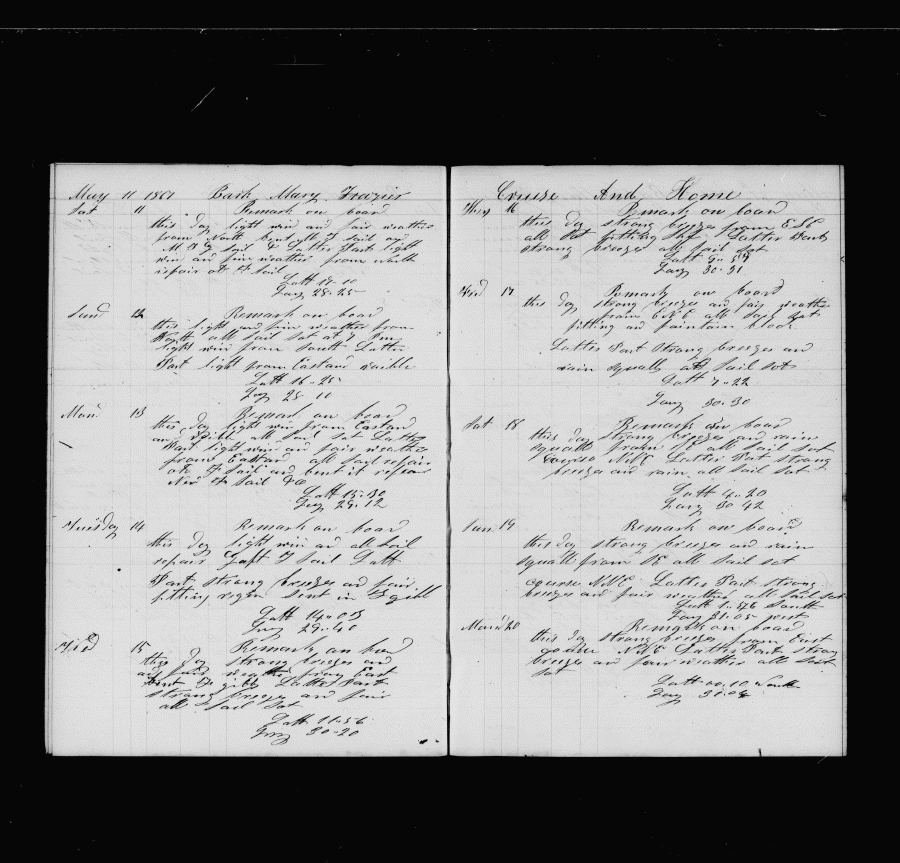 May 11 1861 Bark Mary Frazier
Sat 11 Remark on board
this day light win and fair weather
from North bent off T sail and
M T G sail & Latter Part light
win and fair weather from
repair of T sail
Latt 18-10
Long 28-25
Sund 12 Remark on board
this light and fair weather from
all sail sat at 7 Am
light win from South Latter
Part light from Eastard
Latt 16-25
Long 28 11
Mon 13 Remark on board
this day light win from Eastan
all sail sat Latter
Part light win and fair weather
from Eastan all sail repair
old T sail and bent it
New T sail &c
Latt 15-30
Long 29-12
Tuesday 14 Remark on board
this day light win and all sail
repair T sail Latt
Part strong breezes and fair
fitting sent in
Latt 14-03
Long 29-40
Wed 15 Remark on board
this day strong breezes and
and fair weather from East
Latter Part
strong breezes and fair
all sail sat
Latt 11-56
Long 30-20
Cruise And Home
16 Remark on board
this day strong breezes from ESE
all sat fitting Latter Part
strong breezes all sail sat
Latt 9-59
Long 30-31
17 Remark on board
this day strong breezes and fair weather
from ENE all sail sat
fitting and
Latter Part Strong breezes and
rain squalls all sail sat
Latt 7-22
Long 30-30
Sat 18 Remark on board
this day strong breezes and rain
squalls from SE all sail sat
course NNE Latter Part strong
breezes and rain all sail sat
Latt 4-20
Long 30 42
Sun 19 Remark on board
this day strong breezes and rain
squall from SE all sail sat
course NNE Latter Part strong
breezes and fair weather all sail sat
Latt 1-56 South
Long 31-05 west
Mond 20 Remark on board
this day strong breezes from East
course NNE Latter Part strong
breezes and fair weather all sail
sat
Latt 00-10 North
Long 31-04